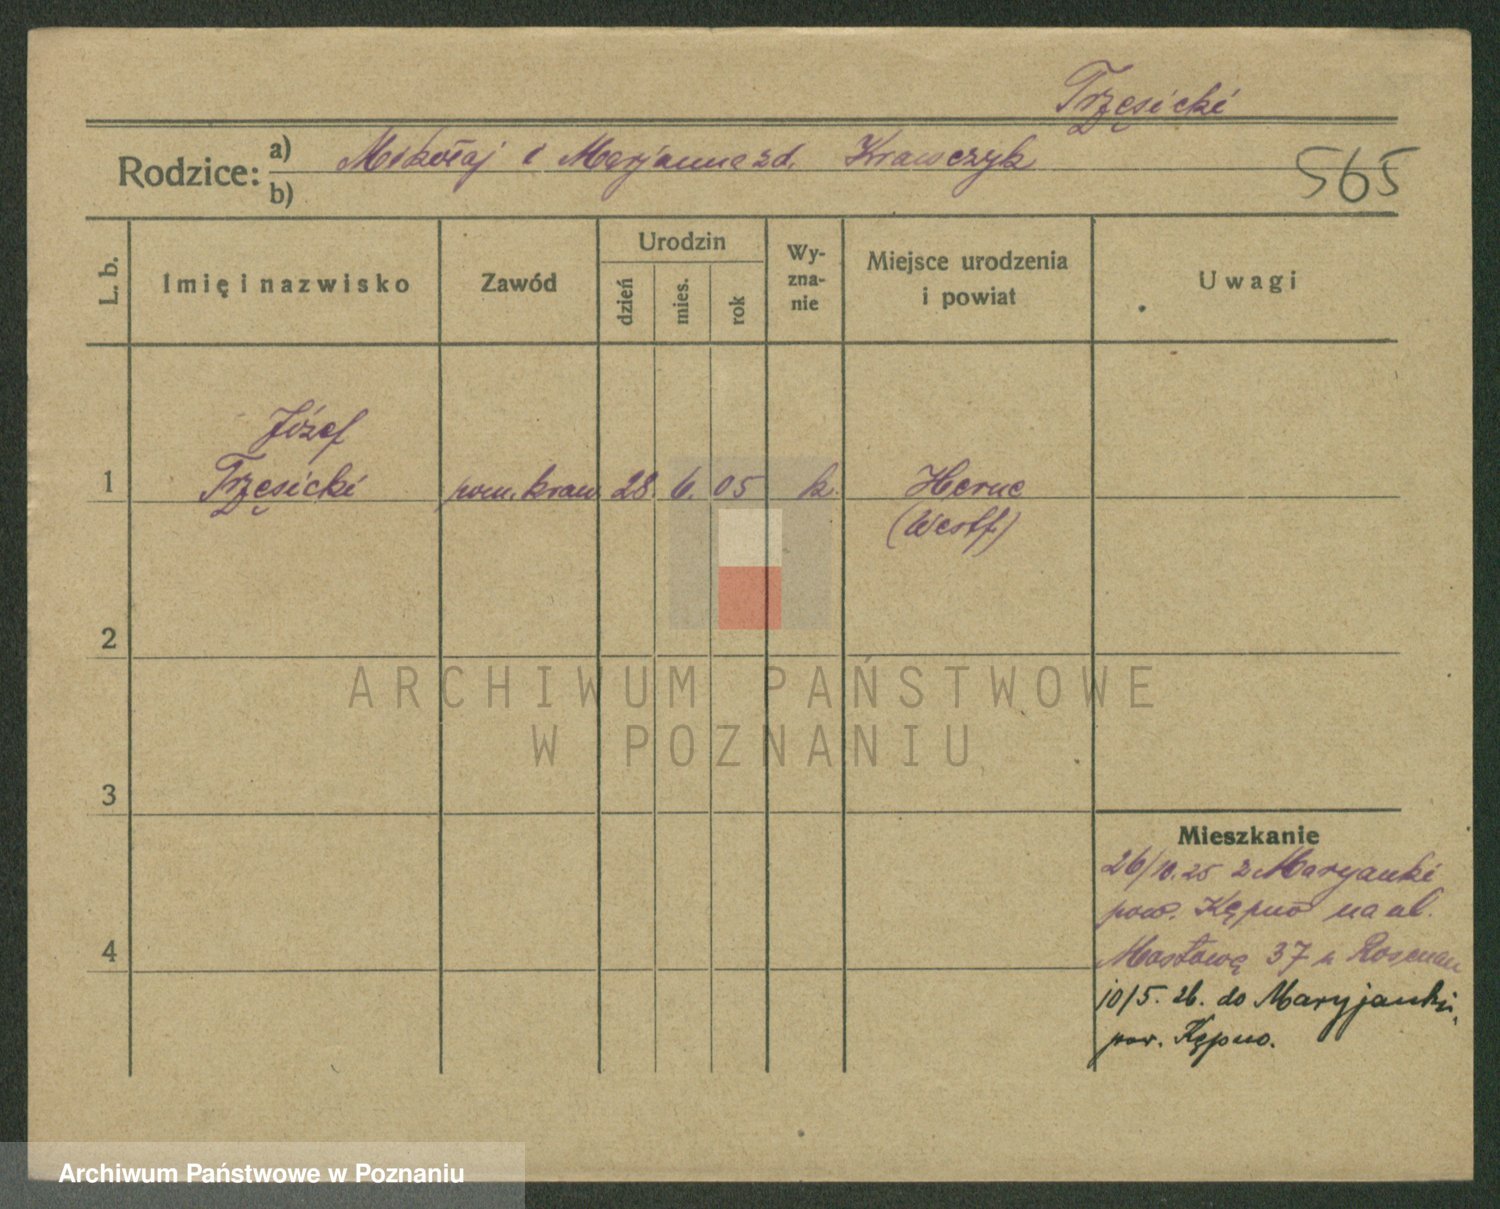 Trzęsicki
Rodzice: a) Mikołaj i Marjanna zd. Krawczyk
b)
565
L. b.
Imię i nazwisko
Zawód
Urodzin
dzień
mies.
rok
Wy-
zna-
nie
Miejsce urodzenia
i powiat
Uwagi
Józef
1 Trzęsicki pom. kraw. 28. 6. 05 k. Herne
(Westf)
2
3
4
ARCHIWUM PAŃSTWOWE
W POZNANIU
Mieszkanie
26/10.25 z Maryanki
pow. Kępno na ul.
Mostową 37 u
10/5. 26. do Maryjanki,
pow. Kępno.
Archiwum Państwowe w Poznaniu